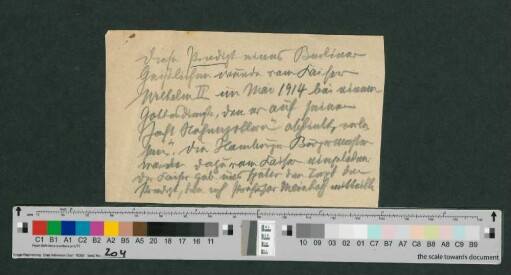 Diese Predigt eines Berliner
Geistlichen wurde vom Kaiser
Wilhelm II im Mai 1914 bei einem
Gottesdienste, den er auf seiner
Yacht Hohenzollern abhielt, verle
sen. Die Hamburger Bürgermeister
waren dazu vom Kaiser eingeladen.
Der Kaiser gab mir später den Text der
Predigt, den ich Professor mitteilte
C1 B1 A1 C2 B2 A2 B5 A5 20 18 17 16 11
10 09 03 02 01 C7 B7 A7 C8 B8 A8 C9 B9
the scale towards document
204